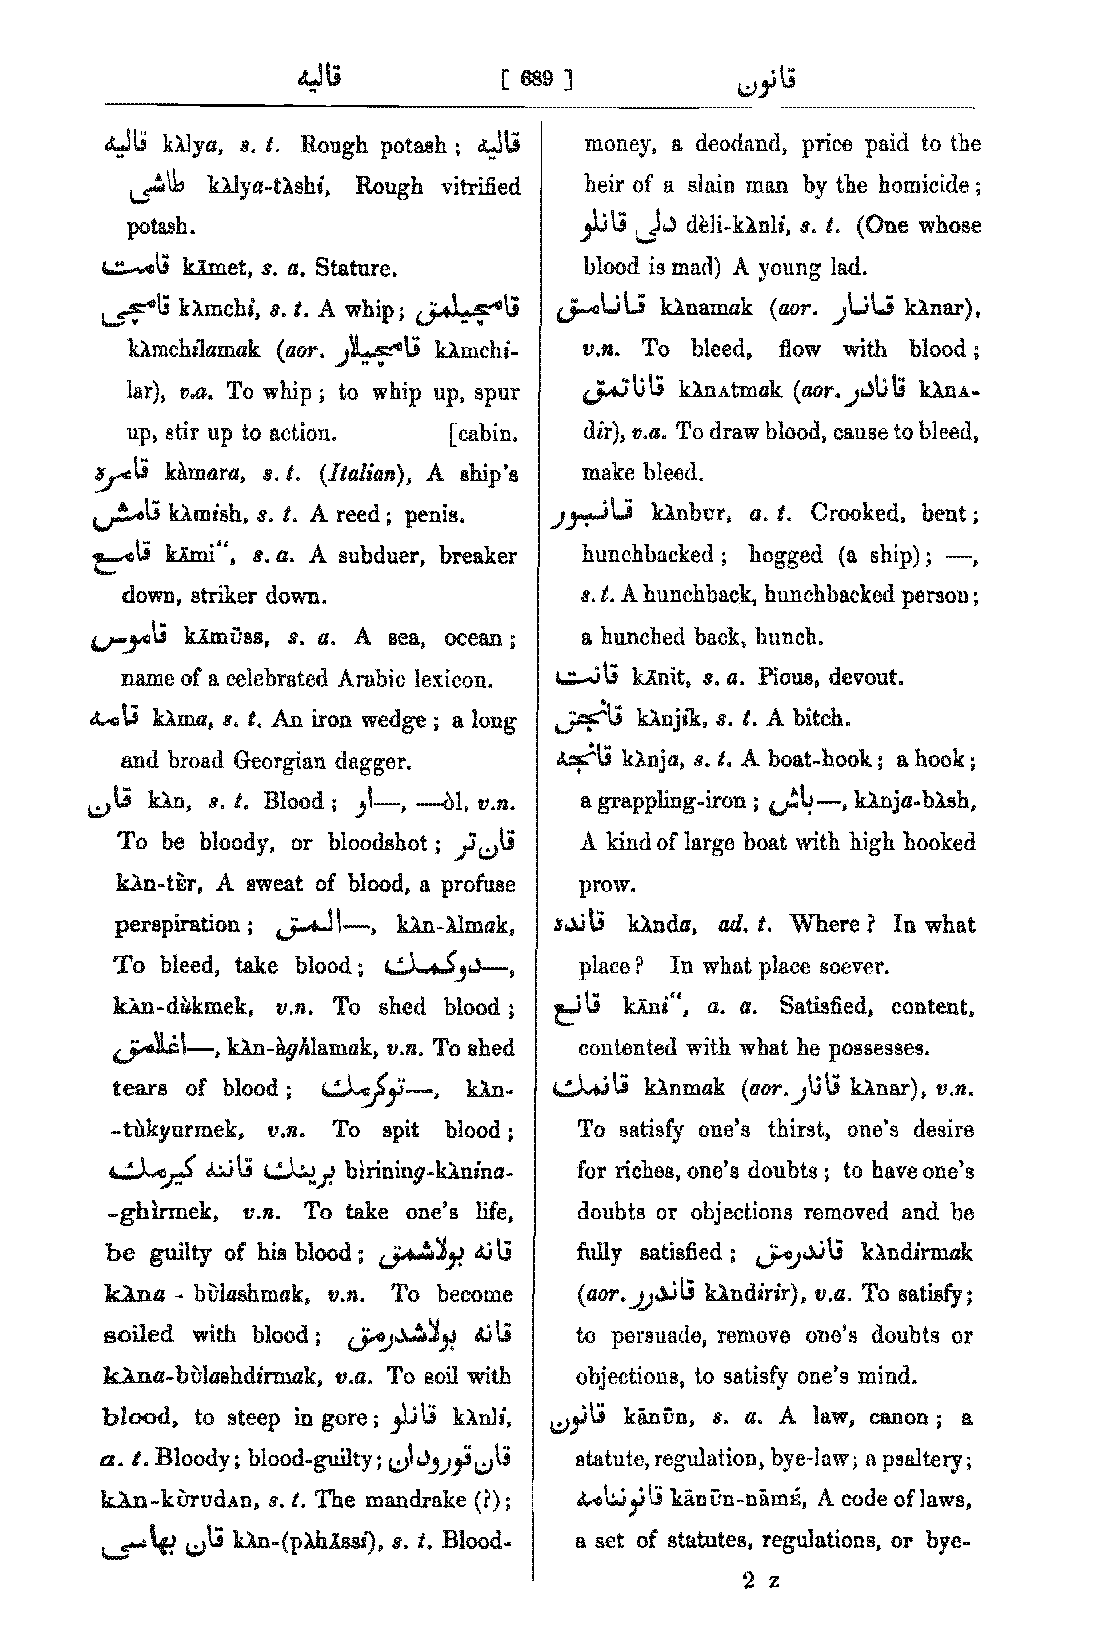 قاليه [ 689 ] قانون
قاليه kλlya, s. t. Rough potash; قاليه
طاشى kλlya-tλshí, Rough vitrified
potash.
قامت kāmet, s. a. Stature.
قامچى kλmchí, s. t. A whip; قامچيلمق
kλmchílamak (aor. قامچيلار kλmchí-
lar), v.a. To whip; to whip up, spur
up, stir up to action. [cabin.
قامره kàmara, s. t. (Italian), A ship's
قامش kλmísh, s. t. A reed; penis.
قامع kāmi“, s. a. A subduer, breaker
down, striker down.
قاموس kāmūss, s. a. A sea, ocean;
name of a celebrated Arabic lexicon.
قامه kλma, s. t. An iron wedge; a long
and broad Georgian dagger.
قان kλn, s. t. Blood; —او, —òl, v.n.
To be bloody, or bloodshot; قان تر
kλn-tÈr, A sweat of blood, a profuse
perspiration; —المق, kλn-λlmak,
To bleed, take blood; —دوكمك,
kλn-dùkmek, v.n. To shed blood;
—اغلامق, kλn-àghlamak, v.n. To shed
tears of blood; —توكرمك, kλn-
-tùkyurmek, v.n. To spit blood;
برينك قاننه كيرمك bìrining-kλnína-
-ghìrmek, v.n. To take one's life,
be guilty of his blood; قانه بولاشمق
kλna-bùlashmak, v.n. To become
soiled with blood; قانه بولاشدرمق
kλna-bùlashdírmak, v.a. To soil with
blood, to steep in gore; قانلو kλnlí,
a. t. Bloody; blood-guilty; قان قورودان
kλn-kùrudAn, s. t. The mandrake (?);
قان بهاسى kλn-(pλhāssí), s. t. Blood-
money, a deodand, price paid to the
heir of a slain man by the homicide;
دلى قانلو dèli-kλnlí, s. t. (One whose
blood is mad) A young lad.
قانامق kλnamak (aor. قانار kλnar),
v.n. To bleed, flow with blood;
قاناتمق kλnAtmak (aor. قانادر kλnA-
dír), v.a. To draw blood, cause to bleed,
make bleed.
قانبور kλnbur, a. t. Crooked, bent;
hunchbacked; hogged (a ship); —,
s. t. A hunchback, hunchbacked person;
a hunched back, hunch.
قانت kānit, s. a. Pious, devout.
قانجق kλnjík, s. t. A bitch.
قانجه kλnja, s. t. A boat-hook; a hook;
a grappling-iron; —باش, kλnja-bλsh,
A kind of large boat with high hooked
prow.
قانده kλnda, ad. t. Where? In what
place? In what place soever.
قانع kāni“, a. a. Satisfied, content,
contented with what he possesses.
قانمك kλnmak (aor. قانار kλnar), v.n.
To satisfy one's thirst, one's desire
for riches, one's doubts; to have one's
doubts or objections removed and be
fully satisfied; قاندرمق kλndírmak
(aor. قاندرر kλndírír), v.a. To satisfy;
to persuade, remove one's doubts or
objections, to satisfy one's mind.
قانون kānūn, s. a. A law, canon; a
statute, regulation, bye-law; a psaltery;
قانوننامه kānūn-nāmé, A code of laws,
a set of statutes, regulations, or bye-
2 z